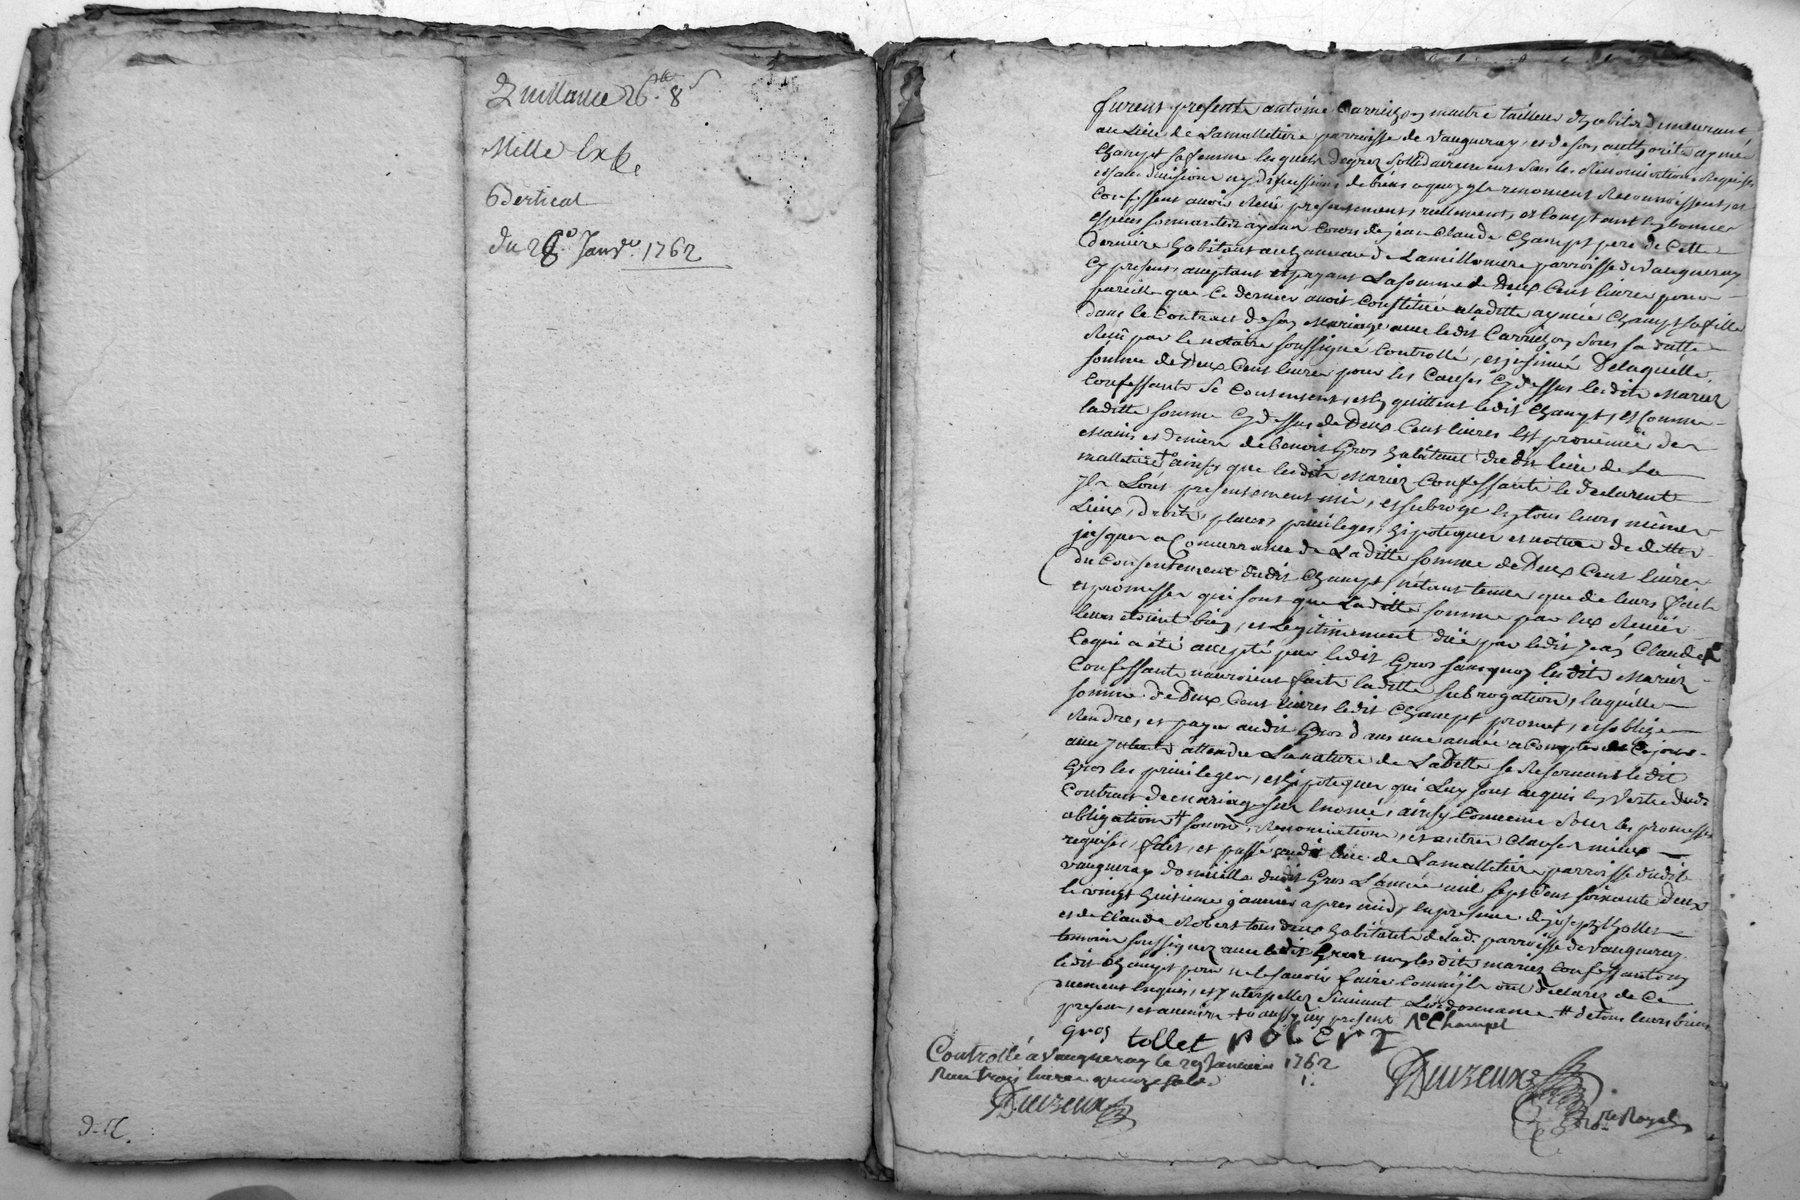 Quittance 26ᵗᵗ 8ˢ
Mille
Bertical
du 28ᵉ Janvᵉʳ 1762
9-
furent presents antoine Carrichon maitre tailleur d'habits demeurant
au Lieu de Lamalletiere parroisse de vaugneray, et de son authorité aymée
Champt sa femme lesquels de grez sollidairement sous les Renonciations Requises
et sans division ny discussion de biens a quoy ils renoncent Reconnoissent, et
Confessent avoir Reçu presentement, reellement, et Comptant en bonnes
espèces sonnantes ayant Cours de jean Claude Champt pere de Cette
derniere habitant au hameau de Lamillonniere parroisse de vaugneray
Cy present, acceptant et payant La somme de Deux Cent livres pour
pareille que Ce dernier avoit Constitué a laditte aymée Champt sa fille
dans le Contract de son Mariage avec ledit Carrichon sous sa datte
Reçu par le notaire soussigné Controllé, et insinué De laquelle
somme de Deux Cent livres pour les Causes Cy dessus lesdits Mariez
Confessants se Contentent, et en quittent ledit Champt, et comme
laditte somme Cy dessus de Deux Cent livres est provenüe des
Mains et deniers de benoit Gros habitant dudit lieu de La
malletiere + ainsy que lesdits Mariez Confessants le declarent
Ils L'ont presentement mis, et subrogé en tous leurs mêmes
Lieux, droits, places, privileges, hipoteques et nature de dettes
jusques a Concurrance de Laditte somme de Deux Cent livres
du Consentement dudit Champt, n'étant tenus que de leurs faits
et promesses qui sont que Laditte somme par eux Reçüe
leurs étoient bien, et Legitimement düe par ledit Jean Claude
Ce qui a été accepté par ledit Gros sans quoy lesdits Mariez
Confessants n'auroient fait laditte subrogation, laquelle
somme de Deux Cent livres ledit Champt promet, et s'oblige
Rendre, et payer audit Gros dans une année a Compter de Cejour
avec attendre La nature de La Dette se Reservant ledit
Gros les privileges, et hipoteques qui Luy sont acquis en Vertu dudit
Contract de Mariage sur enoncé, ainsy Convenu sous les promesses
obligations # , Renonciations, et autres Clauses mieux
requises, fait, et passé audit lieu de Lamalletiere parroisse dudit
vaugneray domicille dudit Gros L'année mil sept Cent soixante deux
le vingt huitieme janvier apres midy en presence de joseph tollet
et de Claude Robert tous deux habitants de lad. parroisse de vaugneray
temoins soussignez avec ledit Gros non lesdits mariez Confessants ny
ledit Champt pour ne le savoir faire Comme ils ont declarez de Ce
duement enquis, et interpellez suivant L'ordonnance # de tous leurs biens
present, et avenirs + aussy cy present
Gros tollet rOBErT Champt
Controllé a vaugneray le 29 Janvier 1762
Reçu trois livres
Duizeux
Duizeux
Nre Royal